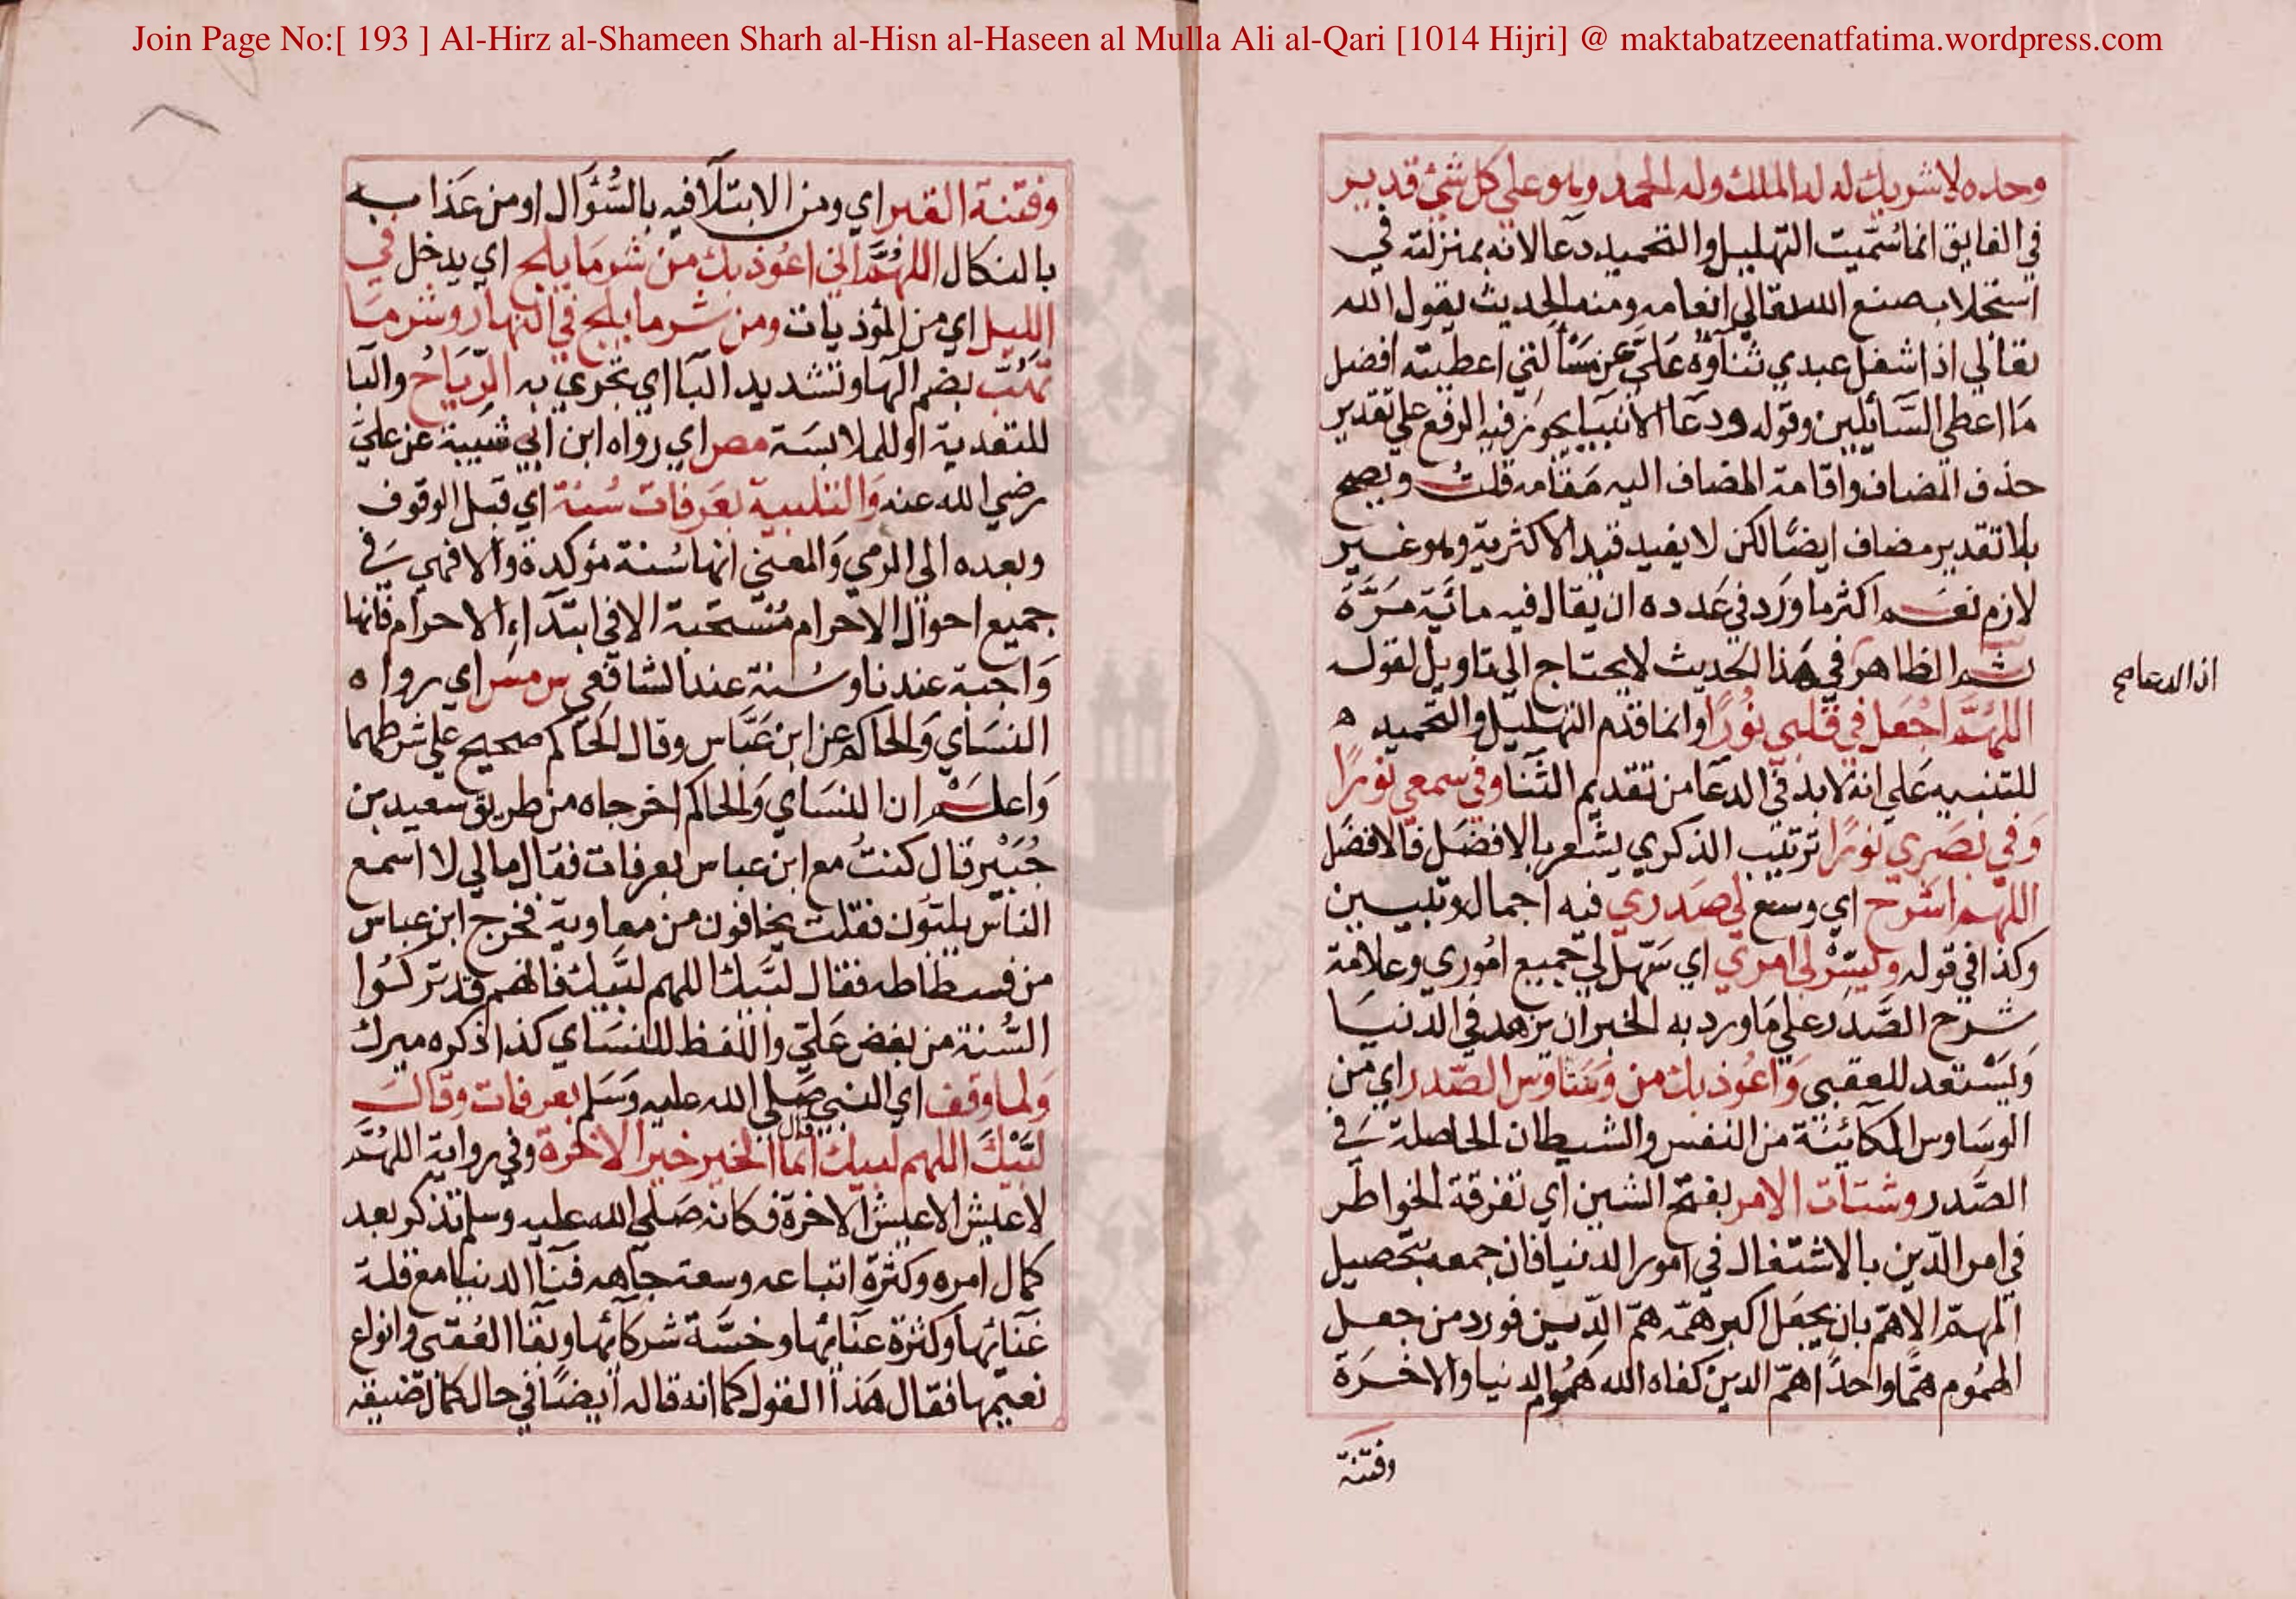 Join Page No:[ 193 ] Al-Hirz al-Shameen Sharh al-Hisn al-Haseen al Mulla Ali al-Qari [1014 Hijri] @ maktabatzeenatfatima.wordpress.com
وحده لا شريك له له الملك وله الحمد وهو على كل شئ قدير
في الفايق انما سُمّيت التهليل والتحميد دعا لانه بمنزلته في
استجلاب صنع الله تعالي انعامه ومنه الحديث يقول الله
تعالي اذا شغل عبدي ثناؤه عَلَيّ عن مَسْألتي اعطيته افضل
مَا اعطي السَّائلين وقوله ودعَا الانبيا يجوز فيه الرفع علي تقدير
حذف المضاف واقامة المضاف اليه مقامه قلتُ ويصح
بلا تقدير مضاف ايضًا لكن لا يفيد قيد الاكثرية وهو غير
لازم نعم اكثر ما وَرَد في عَدده ان يقال فيه مائَة مَرَّة
ثم الظاهر في هَذا الحديث لا يحتاج الي تاويل لقوله
اذ الدعا صح
اللهُمَّ اجْعَل في قلبي نُورًا وانما قدم التهليل والتحميد ه
للتنبيه عَلي انه لا بد في الدعَا من تقديم الثّنَا وفي سمعي نورًا
وَفي بَصَري نورًا ترتيب الذكري يشعر بالافضَل فالافضَل
اللهم اشرَح اي وسع لي صَدري فيه اجمال وتبيين
وكذا في قوله وَيَسِّرْ لي امري اي سَهّل لي جميع امُوري وعلامة
شرح الصَّدر علي مَا ورد به الخبر ان يزهد في الدنيَا
وَيَسْتعد للعقبي وَاعُوذ بك من وسَاوس الصّدر اي من
الوسَاوس الكائنَة من النفس والشيطان الحاصلة في
الصَّدر وشتات الامر بفتح الشين اي تفرقة الخواطر
في امر الدّين بالاشتغال في امور الدنيا فان جمعه بتحصيل
المهمّ الاهمّ بان يجعَل اكبر همّه همّ الدّين فورد من جعل
الهمُوم همًّا واحدًا همّ الدين كفاه الله همُوم الدنيا والاخرَة
وفتنة
وفتنة القبر اي ومن الابتلآ فيه بالسُّؤال او من عَذابه
بالنكال اللهُمَّ اني اعُوذ بك من شر مَا يلج اي يدخل في
الليل اي من المؤذيات ومن شر ما يلج في النهار وشر مَا
تهُبّ بضم الهَا وتشديد البَا اي تجري به الرّيَاحُ والبَا
للتعدية او للملابسَة مص اي رواه ابن ابي شيبة عن عليّ
رضي الله عنه وَالتلبية بعَرفات سُنة اي قبل الوقوف
وبعده الي الرمي وَالمعني انها سُنة مؤكدة والا فهي في
جميع احوال الاحرام مُسْتحَبة الا في ابتدَاءِ الاحرام فانها
وَاجبة عندنا وسُنة عند الشافعي س مس اي رواه
النسَاي وَالحاكم عن ابن عَبَّاس وقال الحَاكم صحيح علي شرطهما
وَاعلم ان النسَاي وَالحاكم اخرجاه من طريق سعيد بن
جُبَيْر قال كنتُ مع ابن عباس بعرفات فقال مالي لا اسمع
الناس يلبّون فقلت يخافون من معاوية فخرج ابن عباس
من فسطاطه فقال لبَّيك اللهم لبَّيك فانهم قد تركوا
السُّنة من بغض عَليّ واللفظ للنسَاي كذا ذكره ميرك
وَلما وقف اي النبي صَلي الله عليه وَسَلم بعرفات وقال
لَبَّيْكَ اللهم لبيك قال انما الخير خير الاخرة وفي رواية اللهُمَّ
لا عيش الا عيش الاخرة فكانه صَلي الله عليه وسلم تذكر بعد
كمال امره وكثرة اتباعه وسعة جاهه فنآ الدنيا مع قلة
غَنَائها وكثرة عنَائها وخسَّة شركائها وبقا العُقبى وانواع
نعيمها فقال هَذا القول كما انه قاله ايضًا في حال كمال ضيقه